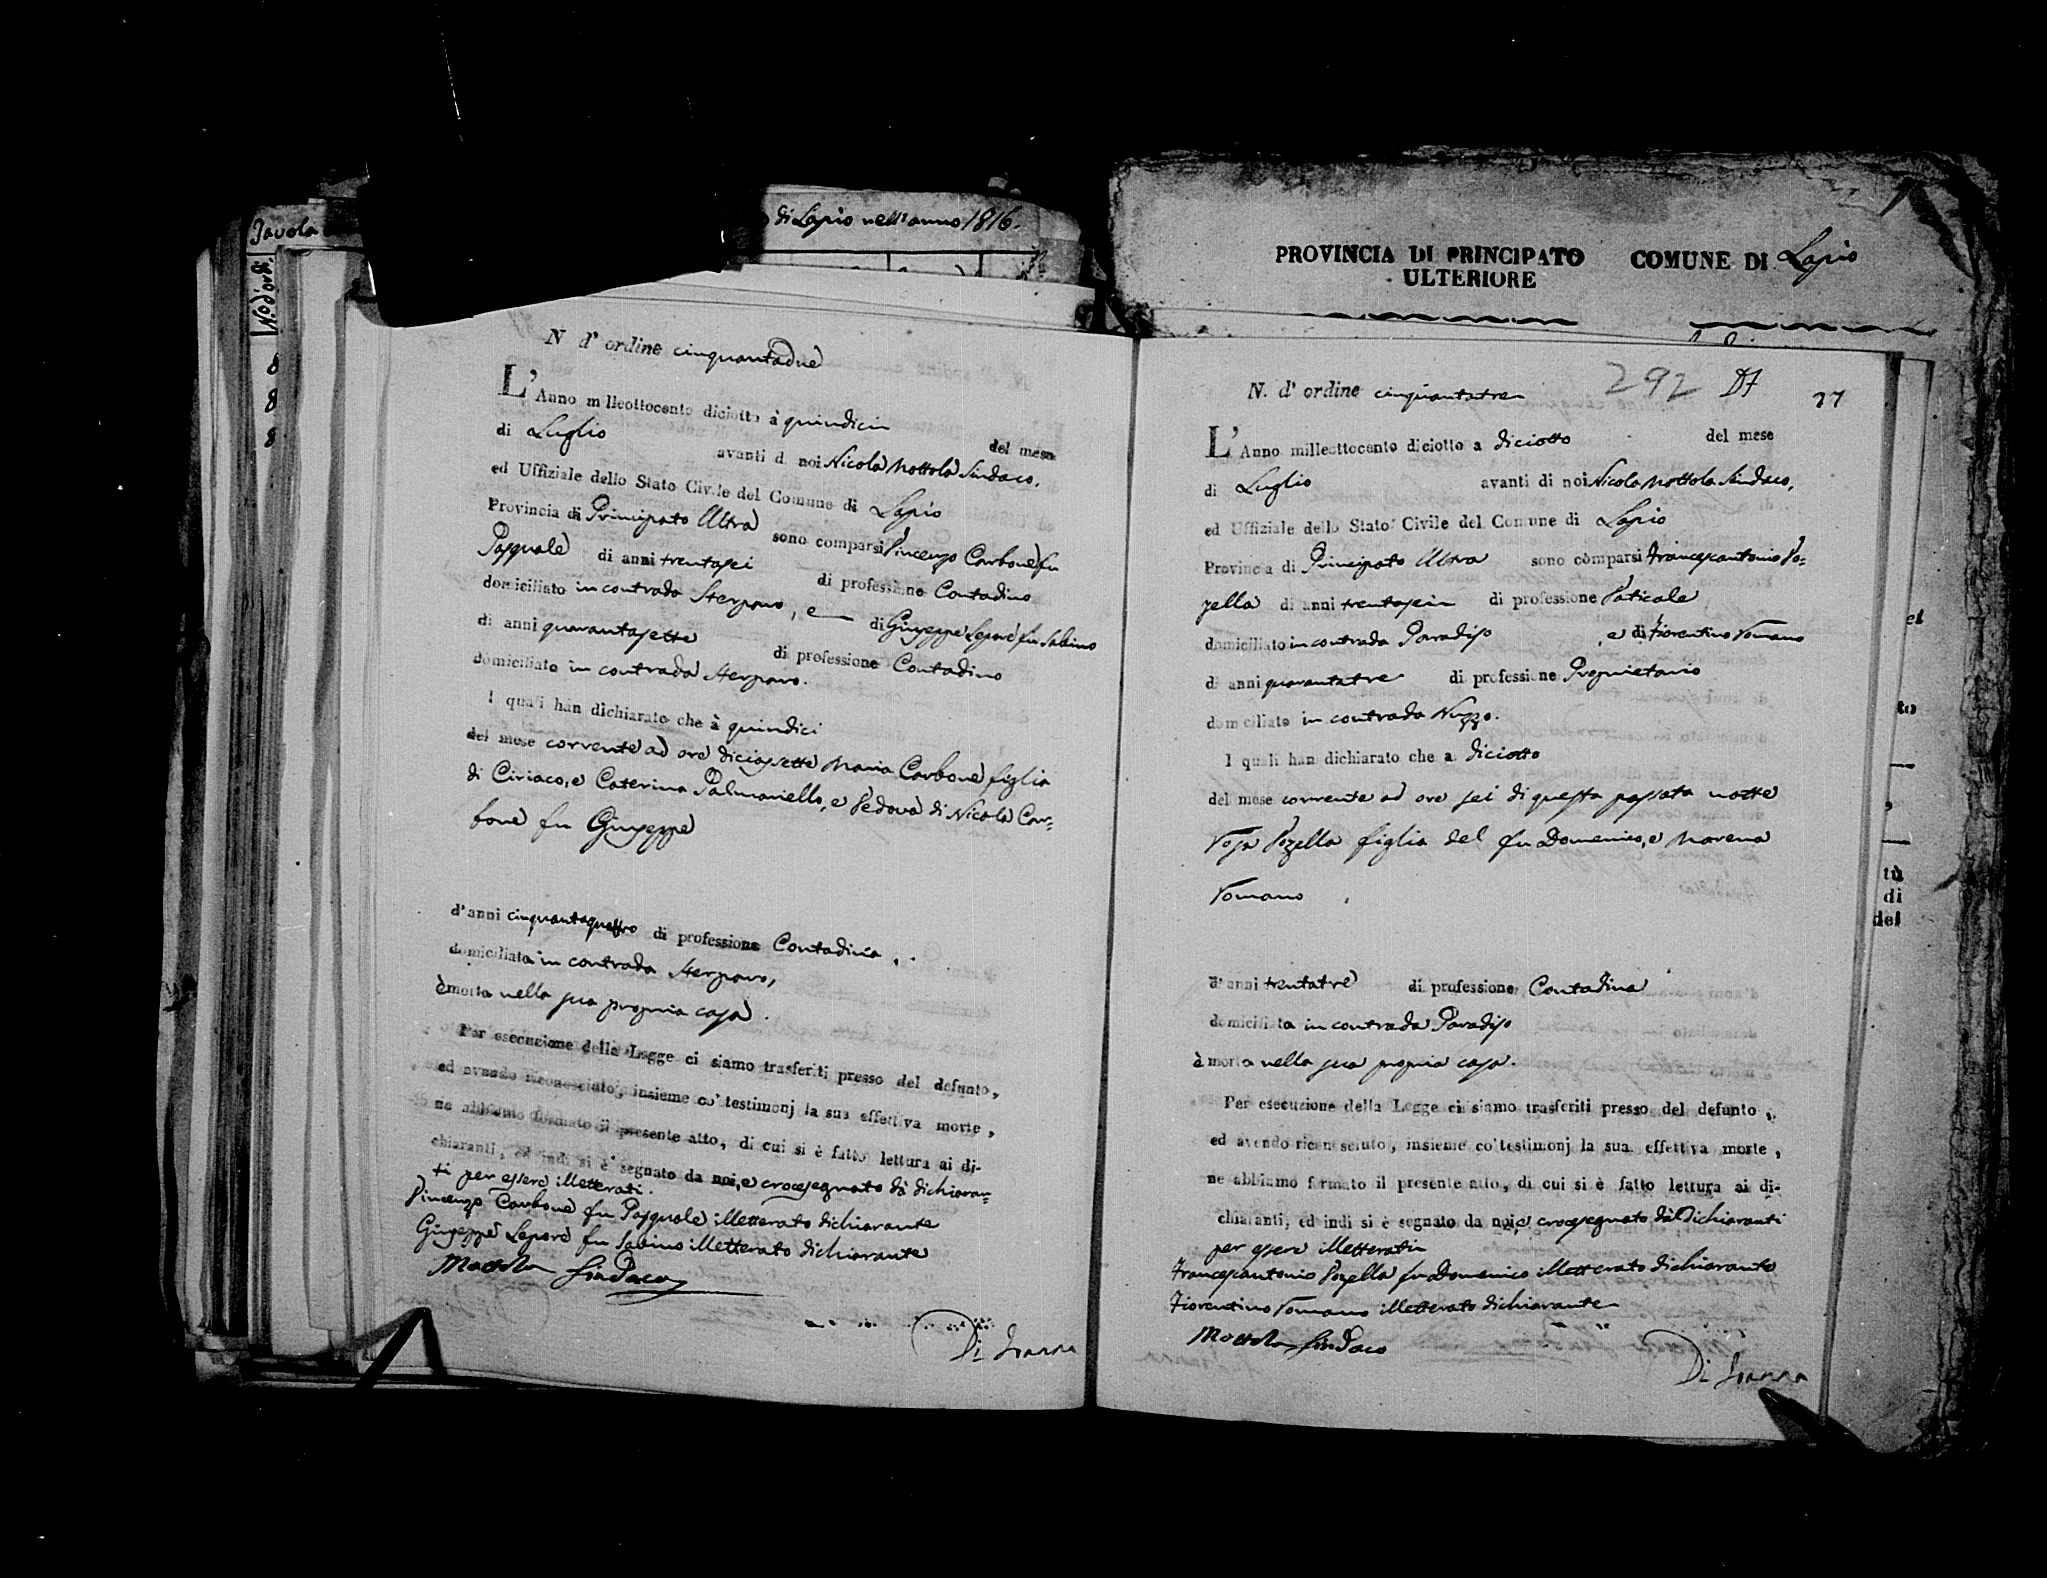 Tavola
di Lapio nell'anno 1816.
No d'ordi.
8
8
8
N d' ordine cinquantadue
L'Anno milleottocento diciotto à quindici del mese
di Luglio avanti di noi Nicola Mottola Sindaco,
ed Uffiziale dello Stato Civile del Comune di Lapio
Provincia di Principato Ultra sono comparsi Vincenzo Carbone fu
Pasquale di anni trentasei di professione Contadino
domiciliato in contrada Sterparo, e di Giuseppe Lepore fu Sabino
di anni quarantasette di professione Contadino
domiciliato in contrada Sterparo.
I quali han dichiarato che à quindici
del mese corrente ad ore diciassette Maria Carbone figlia
di Ciriaco, e Caterina Palmariello, e Vedova di Nicola Car=
bone fu Giuseppe
d'anni cinquantaquattro di professione Contadina,
domiciliata in contrada Sterparo,
è morta nella sua propria casa.
Per esecuzione della Legge ci siamo trasferiti presso del defunto,
ed avendo riconosciuto, insieme co' testimonj la sua effettiva morte,
ne abbiamo formato il presente atto, di cui si è fatto lettura ai di-
chiaranti, ed indi si è segnato da noi, e crocesegnato da dichiaran=
ti per essere illetterati.
Vincenzo Carbone fu Pasquale illetterato dichiarante
Giuseppe Lepore fu Sabino illetterato dichiarante
Mottola Sindaco
PROVINCIA DI PRINCIPATO ULTERIORE
COMUNE DI Lapio
N. d' ordine cinquantatre 292 37
L'Anno milleottocento diciotto a diciotto del mese
di Luglio avanti di noi Nicola Mottola Sindaco,
ed Uffiziale dello Stato Civile del Comune di Lapio
Provincia di Principato Ultra sono comparsi Francescantonio Vo=
zella di anni trentasei di professione Vaticale
domiciliato in contrada Paradiso e di Fiorentino Romano
di anni quarantatre di professione Proprietario
domiciliato in contrada Nuzzo.
I quali han dichiarato che a diciotto
del mese corrente ad ore sei di questa passata notte
Rosa Vozella figlia del fu Domenico, e Morena
Romano
d'anni trentatre di professione Contadina
domiciliata in contrada Paradiso
è morta nella sua propria casa.
Per esecuzione della Legge ci siamo trasferiti presso del defunto,
ed avendo riconosciuto, insieme co' testimonj la sua effettiva morte,
ne abbiamo formato il presente atto, di cui si è fatto lettura ai di-
chiaranti, ed indi si è segnato da noi, e crocesegnato da Dichiaranti
per essere illetterati
Francescantonio Vozella fu Domenico illetterato dichiarante
Fiorentino Romano illetterato dichiarante
Mottola Sindaco
to
tù
di
del